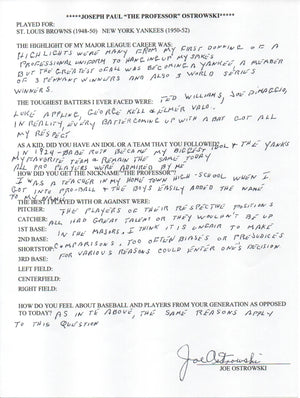 *****JOSEPH PAUL "THE PROFESSOR" OSTROWSKI*****
PLAYED FOR:
ST. LOUIS BROWNS (1948-50) NEW YORK YANKEES (1950-52)
THE HIGHLIGHT OF MY MAJOR LEAGUE CAREER WAS:
HIGHLIGHTS WERE MANY FROM MY FIRST DONNING OF A
PROFESSIONAL UNIFORM TO HANGING UP MY SPIKES
BUT THE GREATEST OF ALL WAS BECOMING A YANKEE, A MEMBER
OF 3 PENNANT WINNERS AND ALSO 3 WORLD SERIES
WINNERS.
THE TOUGHEST BATTERS I EVER FACED WERE: TED WILLIAMS, JOE DIMAGGIO,
LUKE APPLING, GEORGE KELL & ELMER VALO.
IN REALITY, EVERY BATTER COMING UP WITH A BAT GOT ALL
MY RESPECT
AS A KID, DID YOU HAVE AN IDOL OR A TEAM THAT YOU FOLLOWED?
IN 1924 - BABE RUTH BECAME MY BIGGEST IDOL & THE YANKS
MY FAVORITE TEAM & REMAIN THE SAME TODAY
ALL PRO PLAYERS WERE ADMIRED BY ME
HOW DID YOU GET THE NICKNAME "THE PROFESSOR"?
I WAS A TEACHER IN MY HOME TOWN HIGH-SCHOOL WHEN I
GOT INTO PRO-BALL & THE BOYS EASILY ADDED THE NAME
TO MY NAME
THE BEST I PLAYED WITH OR AGAINST WERE:
PITCHER: THE PLAYERS OF THEIR RESPECTIVE POSITIONS
CATCHER: ALL HAD GREAT TALENT OR THEY WOULDN'T BE UP
1ST BASE: IN THE MAJORS, I THINK IT IS UNFAIR TO MAKE
2ND BASE: COMPARISONS, TOO OFTEN BIASES OR PRESSURES
SHORTSTOP: FOR VARIOUS REASONS COULD ENTER ONE'S DECISION.
3RD BASE:
LEFT FIELD:
CENTERFIELD:
RIGHT FIELD:
HOW DO YOU FEEL ABOUT BASEBALL AND PLAYERS FROM YOUR GENERATION AS OPPOSED
TO TODAY? AS IN THE ABOVE, THE SAME REASONS APPLY
TO THIS QUESTION
Joe Ostrowski
JOE OSTROWSKI